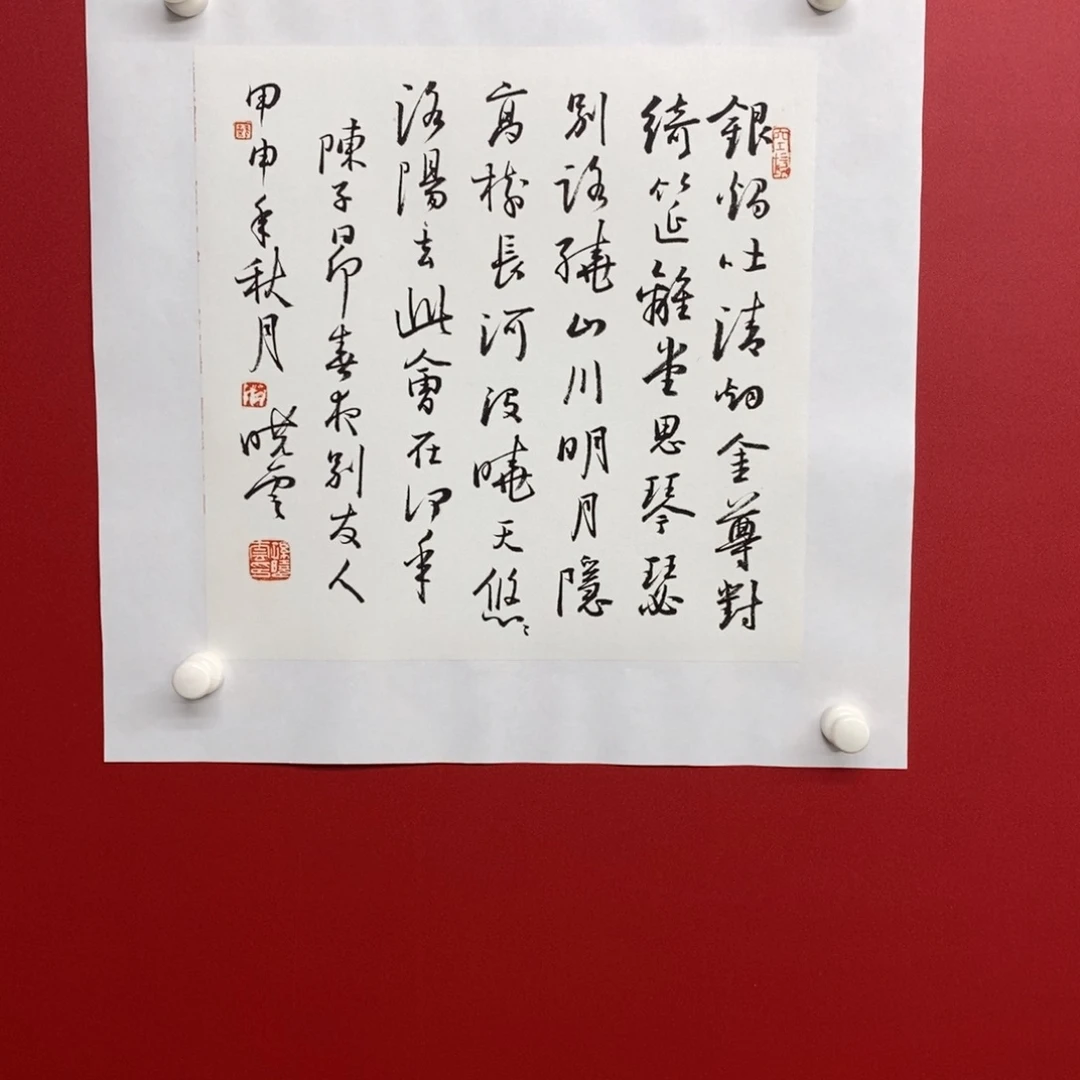 銀燭吐清烟金尊對
綺筵離堂思琴瑟
別路繞山川明月隱
高樹長河沒曉天悠〻
洛陽去此會在何年
陳子昂春夜別友人
甲申年秋月 曉雲
孫曉雲印